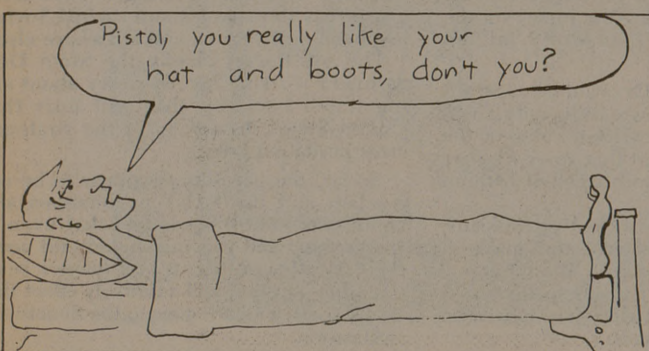 Pistol, you really like your
hat and boots, don't you?